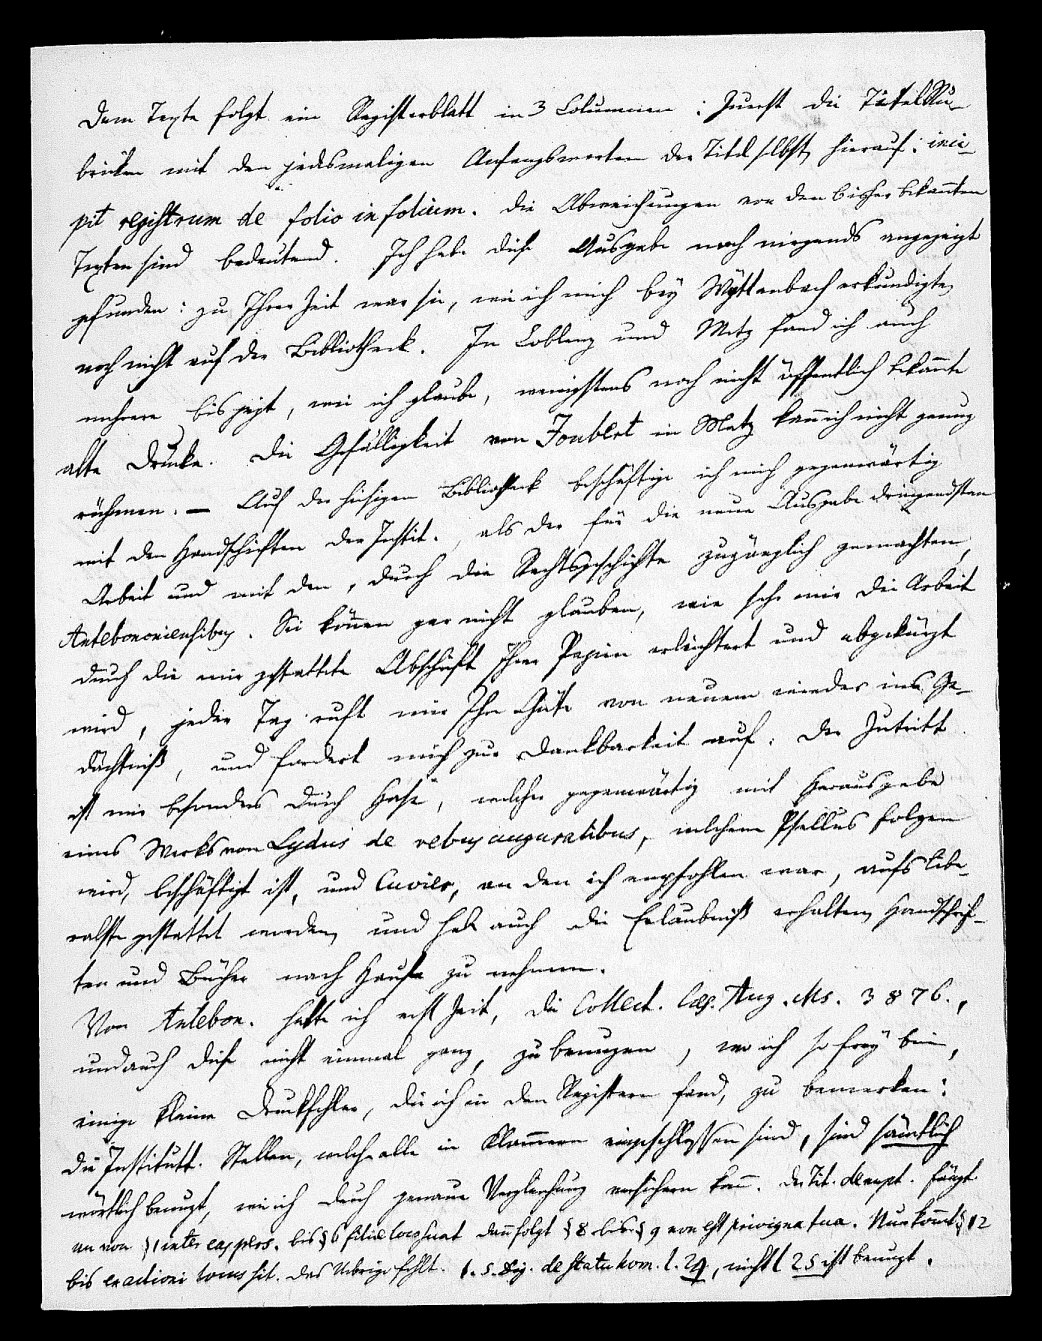 Dem Texte folgt ein Registerblatt in 3 Columnen: Zuerst die Titel Ru-
briken mit den jedesmaligen Anfangsworten der Titel selbst, hierauf: inci-
pit registrum de folio in folium. Die Abweichungen von den bisher bekannten
Texten sind bedeutend. Ich habe diese Ausgabe noch nirgends angezeigt
gefunden: zu Ihrer Zeit war sie, wie ich mich bey Wyttenbach erkundigte,
noch nicht auf der Bibliotheck. In Coblenz und Metz fand ich auch
mehrere bis jezt, wie ich glaube, wenigstens noch nicht öffentlich bekannte
alte Drucke. Die Gefälligkeit von Joubert in Metz kann ich nicht genug
rühmen. — Auf der hiesigen Bibliotheck beschäftige ich mich gegenwärtig
mit den Handschriften der Instit., als der für die neue Ausgabe dringendsten
Arbeit und mit den, durch die Rechtsgeschichte zugänglich gemachten,
Antebononiensibus. Sie können gar nicht glauben, wie sehr mir die Arbeit
durch die mir gestattete Abschrift Ihrer Papiere erleichtert und abgekürzt
wird, jeder Tag ruft mir Ihre Güte von neuem wieder ins Ge-
dächtniß, und fordert mich zur Dankbarkeit auf. Der Zutritt
ist mir besonders durch Hase, welcher gegenwärtig mit Herausgabe
eines Werks von Lydus de rebus auguralibus, welchem Psellus folgen
wird, beschäftigt ist, und Cuvier, an den ich empfohlen war, aufs libe-
ralste gestattet worden, und habe auch die Erlaubniß erhalten, Handschrif-
ten und Bücher nach Hause zu nehmen.
Von Antebon. hatte ich erst Zeit, die Collect. Caes. Aug. Ms. 3876.,
und auch diese nicht einmal ganz, zu benuzen, wo ich so frey bin,
einige kleine Druckfehler, die ich in den Registern fand, zu bemerken:
die Institut. Stellen, welche alle in Klammern eingeschlossen sind, sind sämtlich
wörtlich benuzt, wie ich durch genaue Vergleichung versichern kann. Der Tit. de nupt. fängt
an von § 1 inter eas pers. bis § 6 filiae loco sunt dann folgt § 8 bis § 9 non est privigna tua. Nun kommt § 12
bis exactioni locus sit. das Uebrige fehlt. l. 5. Dig. de statu hom. l. 29, nicht l 25 ist benuzt.